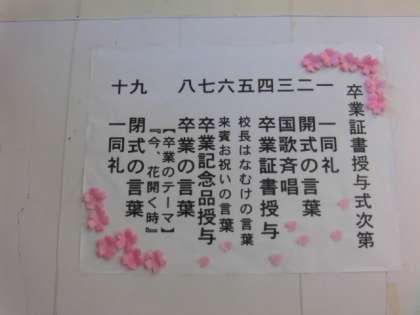 卒業証書授与式次第
一 一同礼
二 開式の言葉
三 国歌斉唱
四 卒業証書授与
五 校長はなむけの言葉
六 来賓お祝いの言葉
七 卒業記念品授与
八 卒業の言葉
【卒業のテーマ】
『今、花開く時』
九 閉式の言葉
十 一同礼